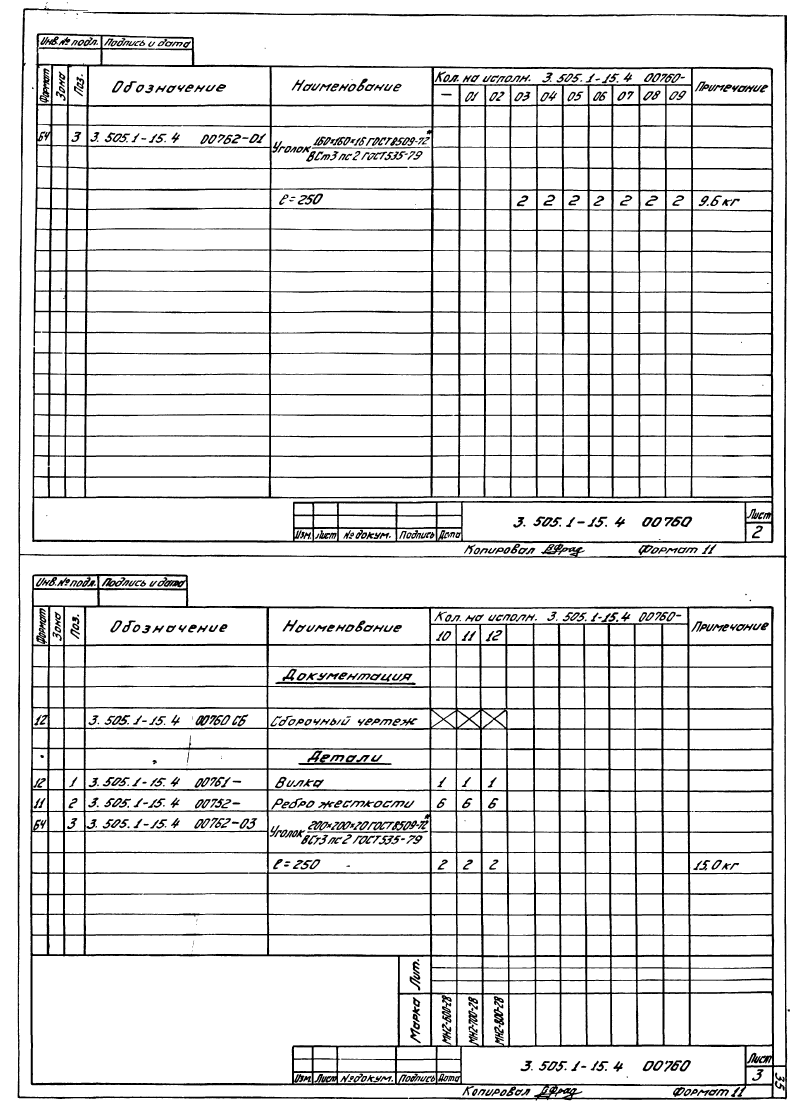 Инв.№ подл. Подпись и дата
Формат Зона Поз. Обозначение Наименование Кол. на исполн. 3.505.1-15.4 00760- Примечание
— 01 02 03 04 05 06 07 08 09
БЧ 3 3.505.1-15.4 00762-01 Уголок 160×160×16 ГОСТ 8509-72*
ВСт3 пс 2 ГОСТ 535-79
ℓ=250 2 2 2 2 2 2 2 9.6 кг
Изм. Лист № докум. Подпись Дата
3.505.1-15.4 00760
Лист
2
Копировал Формат 11
Инв.№ подл. Подпись и дата
Формат Зона Поз. Обозначение Наименование Кол. на исполн. 3.505.1-15.4 00760- Примечание
10 11 12
Документация
12 3.505.1-15.4 00760 СБ Сборочный чертеж
Детали
12 1 3.505.1-15.4 00761- Вилка 1 1 1
11 2 3.505.1-15.4 00752- Ребро жесткости 6 6 6
БЧ 3 3.505.1-15.4 00762-03 Уголок 200×200×20 ГОСТ 8509-72*
ВСт3 пс 2 ГОСТ 535-79
ℓ=250 2 2 2 15.0 кг
Лит.
Марка МН2-600-28 МН2-700-28 МН2-800-28
Изм. Лист № докум. Подпись Дата
3.505.1-15.4 00760
Лист
3
Копировал Формат 11
35